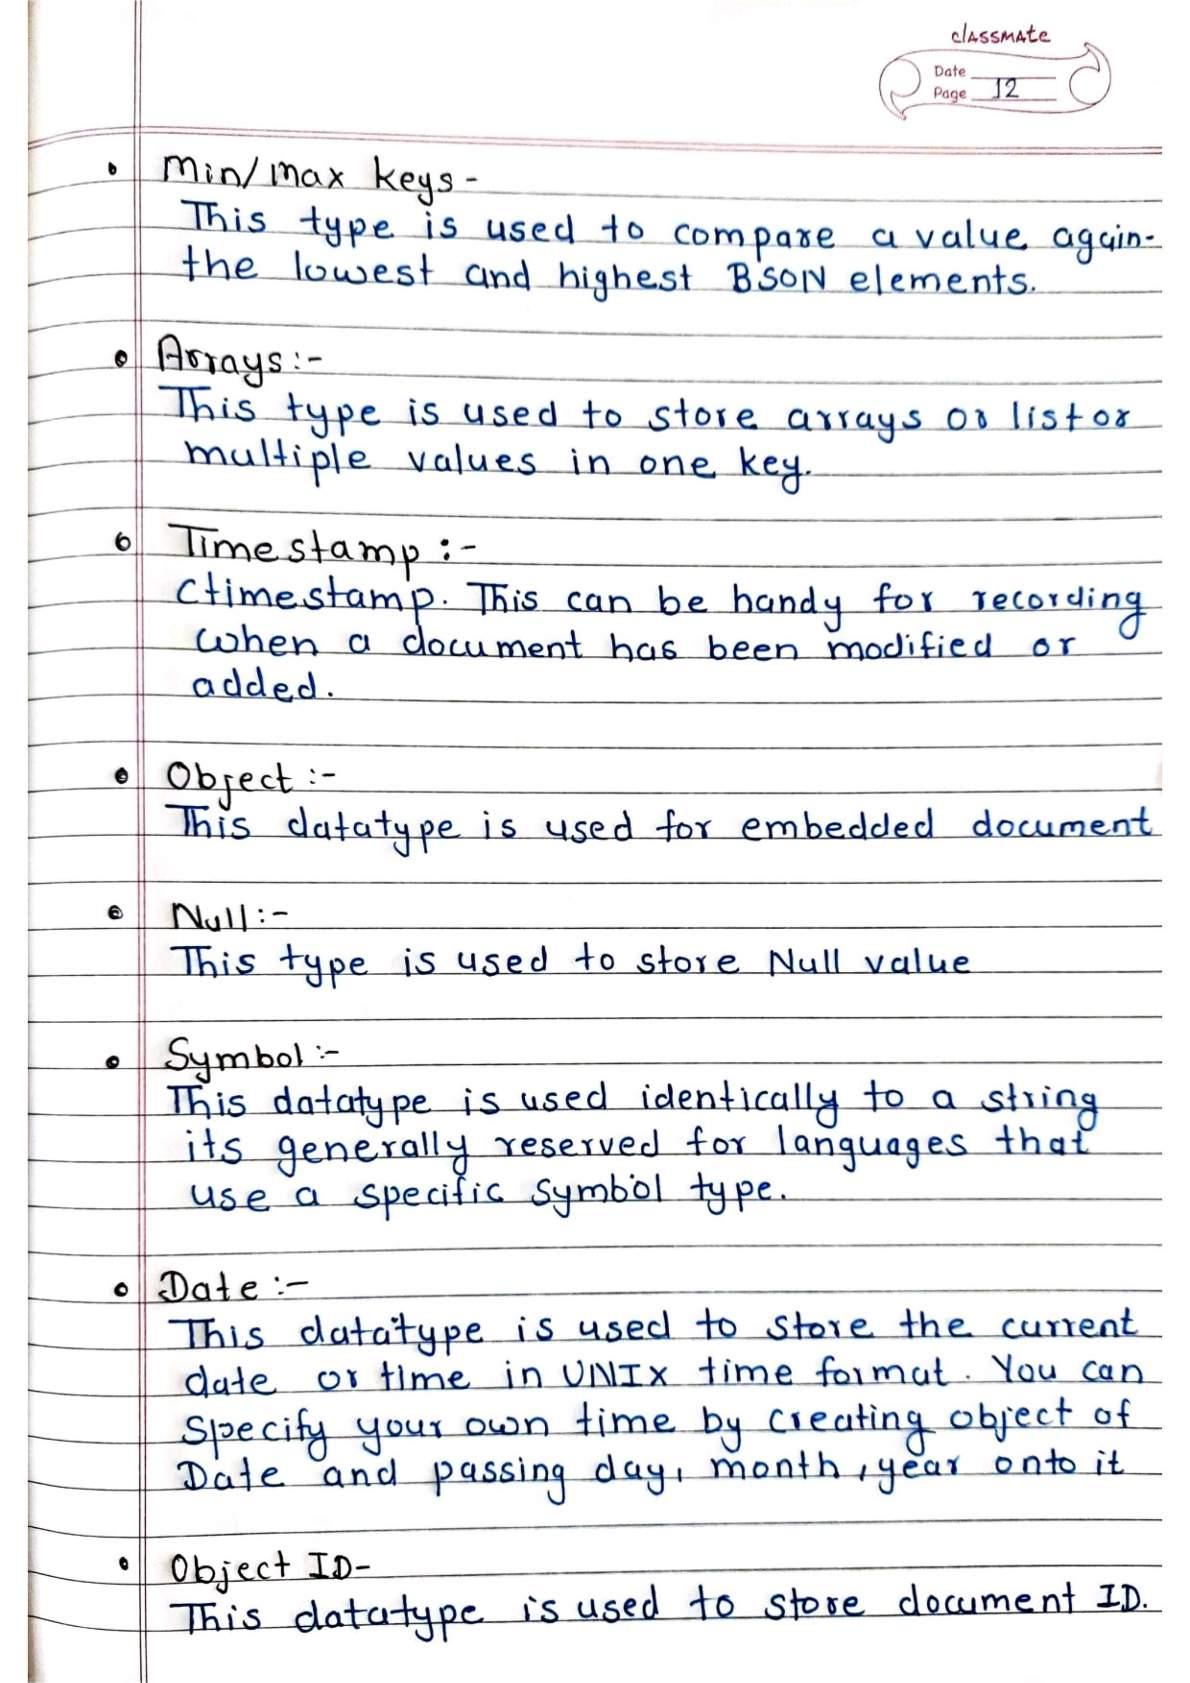 classmate
Date
Page 12
Min/max keys-
This type is used to compare a value again-
the lowest and highest BSON elements.
Arrays:-
This type is used to store arrays or list or
multiple values in one key.
Timestamp:-
ctimestamp. This can be handy for recording
when a document has been modified or
added.
Object:-
This datatype is used for embedded document
Null:-
This type is used to store Null value
Symbol:-
This datatype is used identically to a string
its generally reserved for languages that
use a specific symbol type.
Date:-
This datatype is used to store the current
date or time in UNIX time format. You can
specify your own time by creating object of
Date and passing day, month, year onto it
Object ID-
This datatype is used to store document ID.